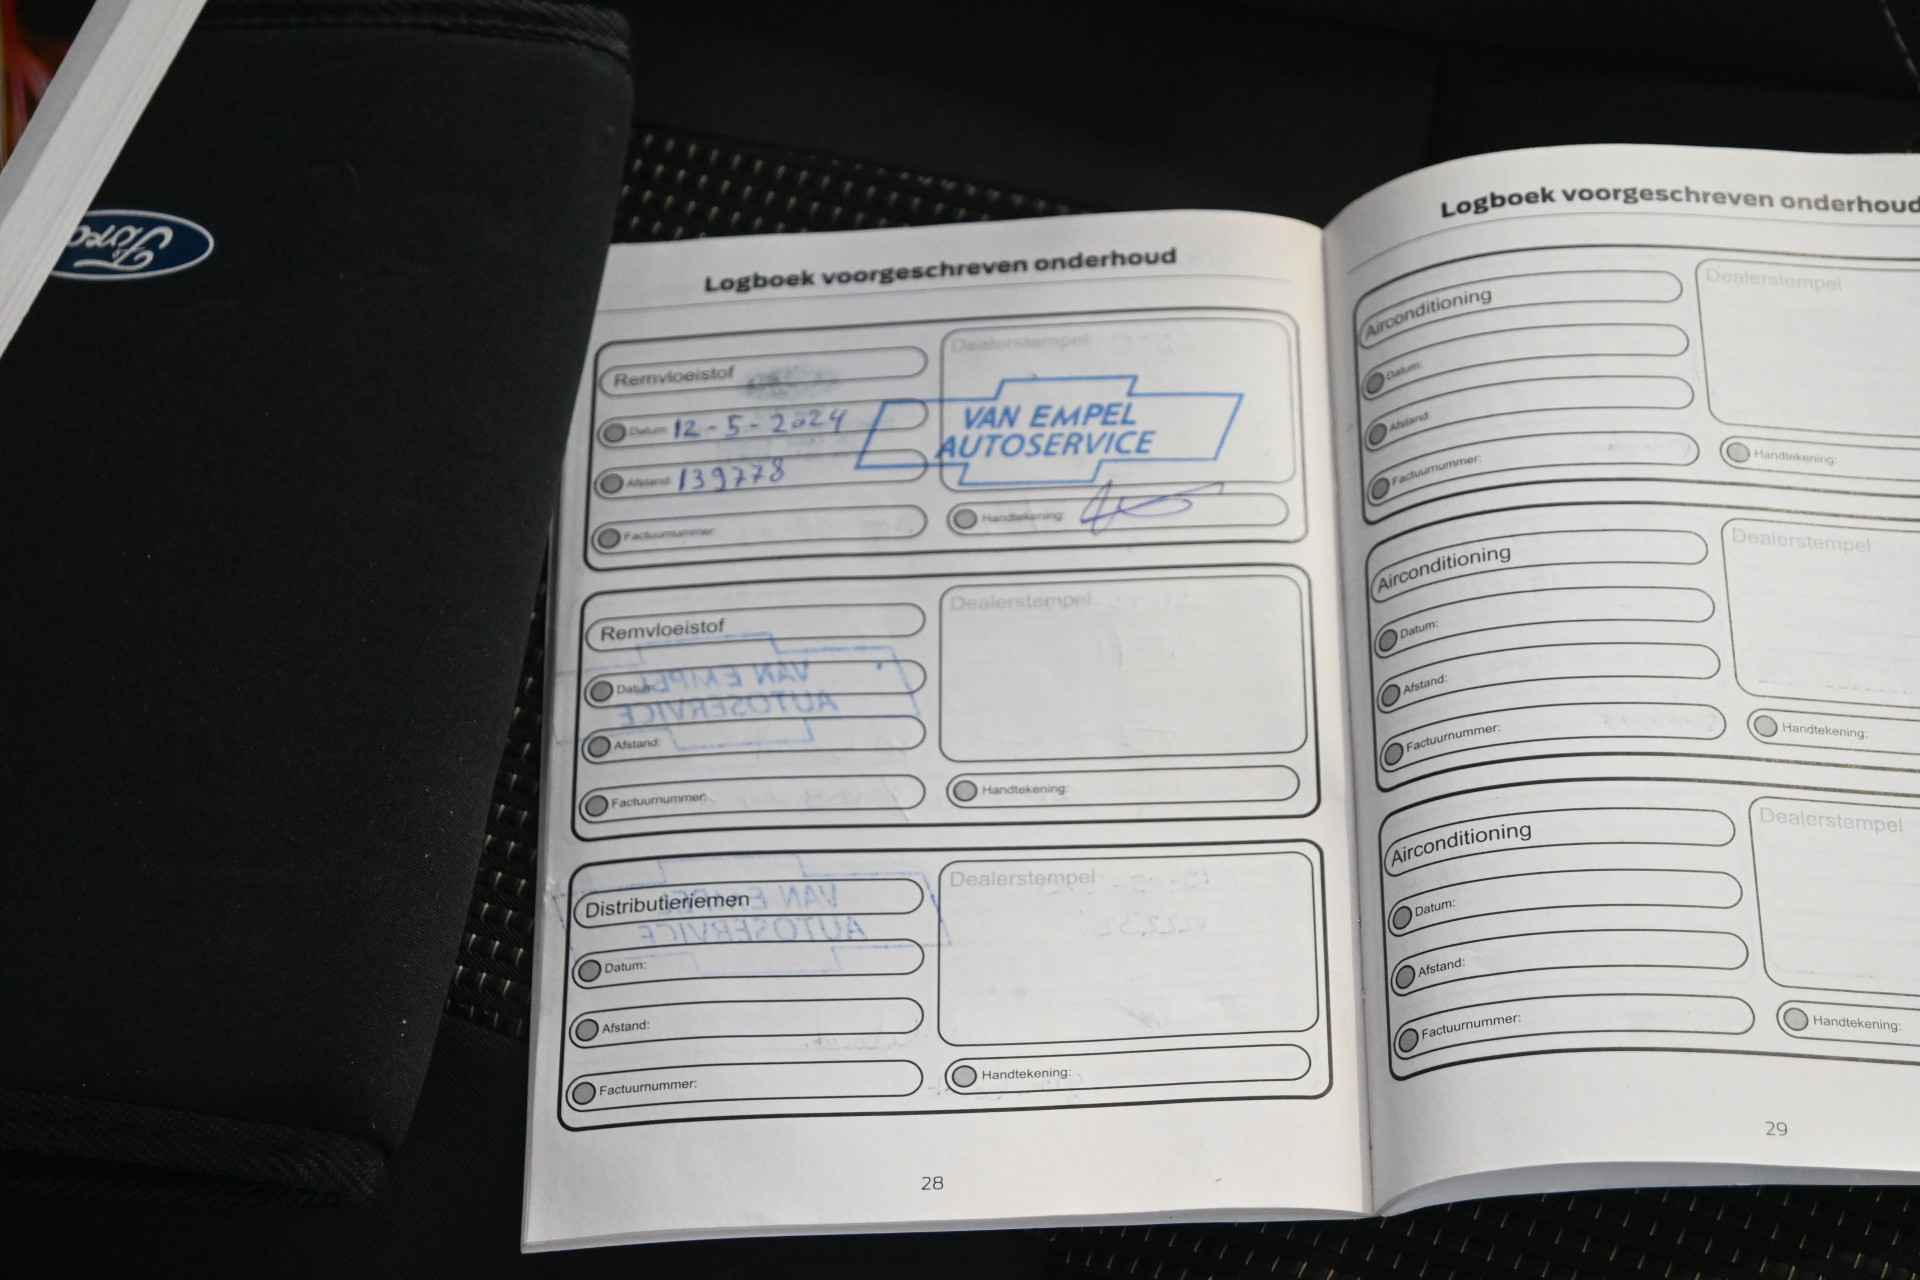 Ford
Logboek voorgeschreven onderhoud
Remvloeistof
Datum: 12-5-2024
Afstand: 139778
Factuurnummer:
Dealerstempel
VAN EMPEL
AUTOSERVICE
Handtekening:
Remvloeistof
Datum:
Afstand:
Factuurnummer:
Dealerstempel
Handtekening:
VAN EMPEL
AUTOSERVICE
Distributieriemen
Datum:
Afstand:
Factuurnummer:
Dealerstempel
Handtekening:
VAN EMPEL
AUTOSERVICE
28
Logboek voorgeschreven onderhoud
Airconditioning
Datum:
Afstand:
Factuurnummer:
Dealerstempel
Handtekening:
Airconditioning
Datum:
Afstand:
Factuurnummer:
Dealerstempel
Handtekening:
Airconditioning
Datum:
Afstand:
Factuurnummer:
Dealerstempel
Handtekening:
29